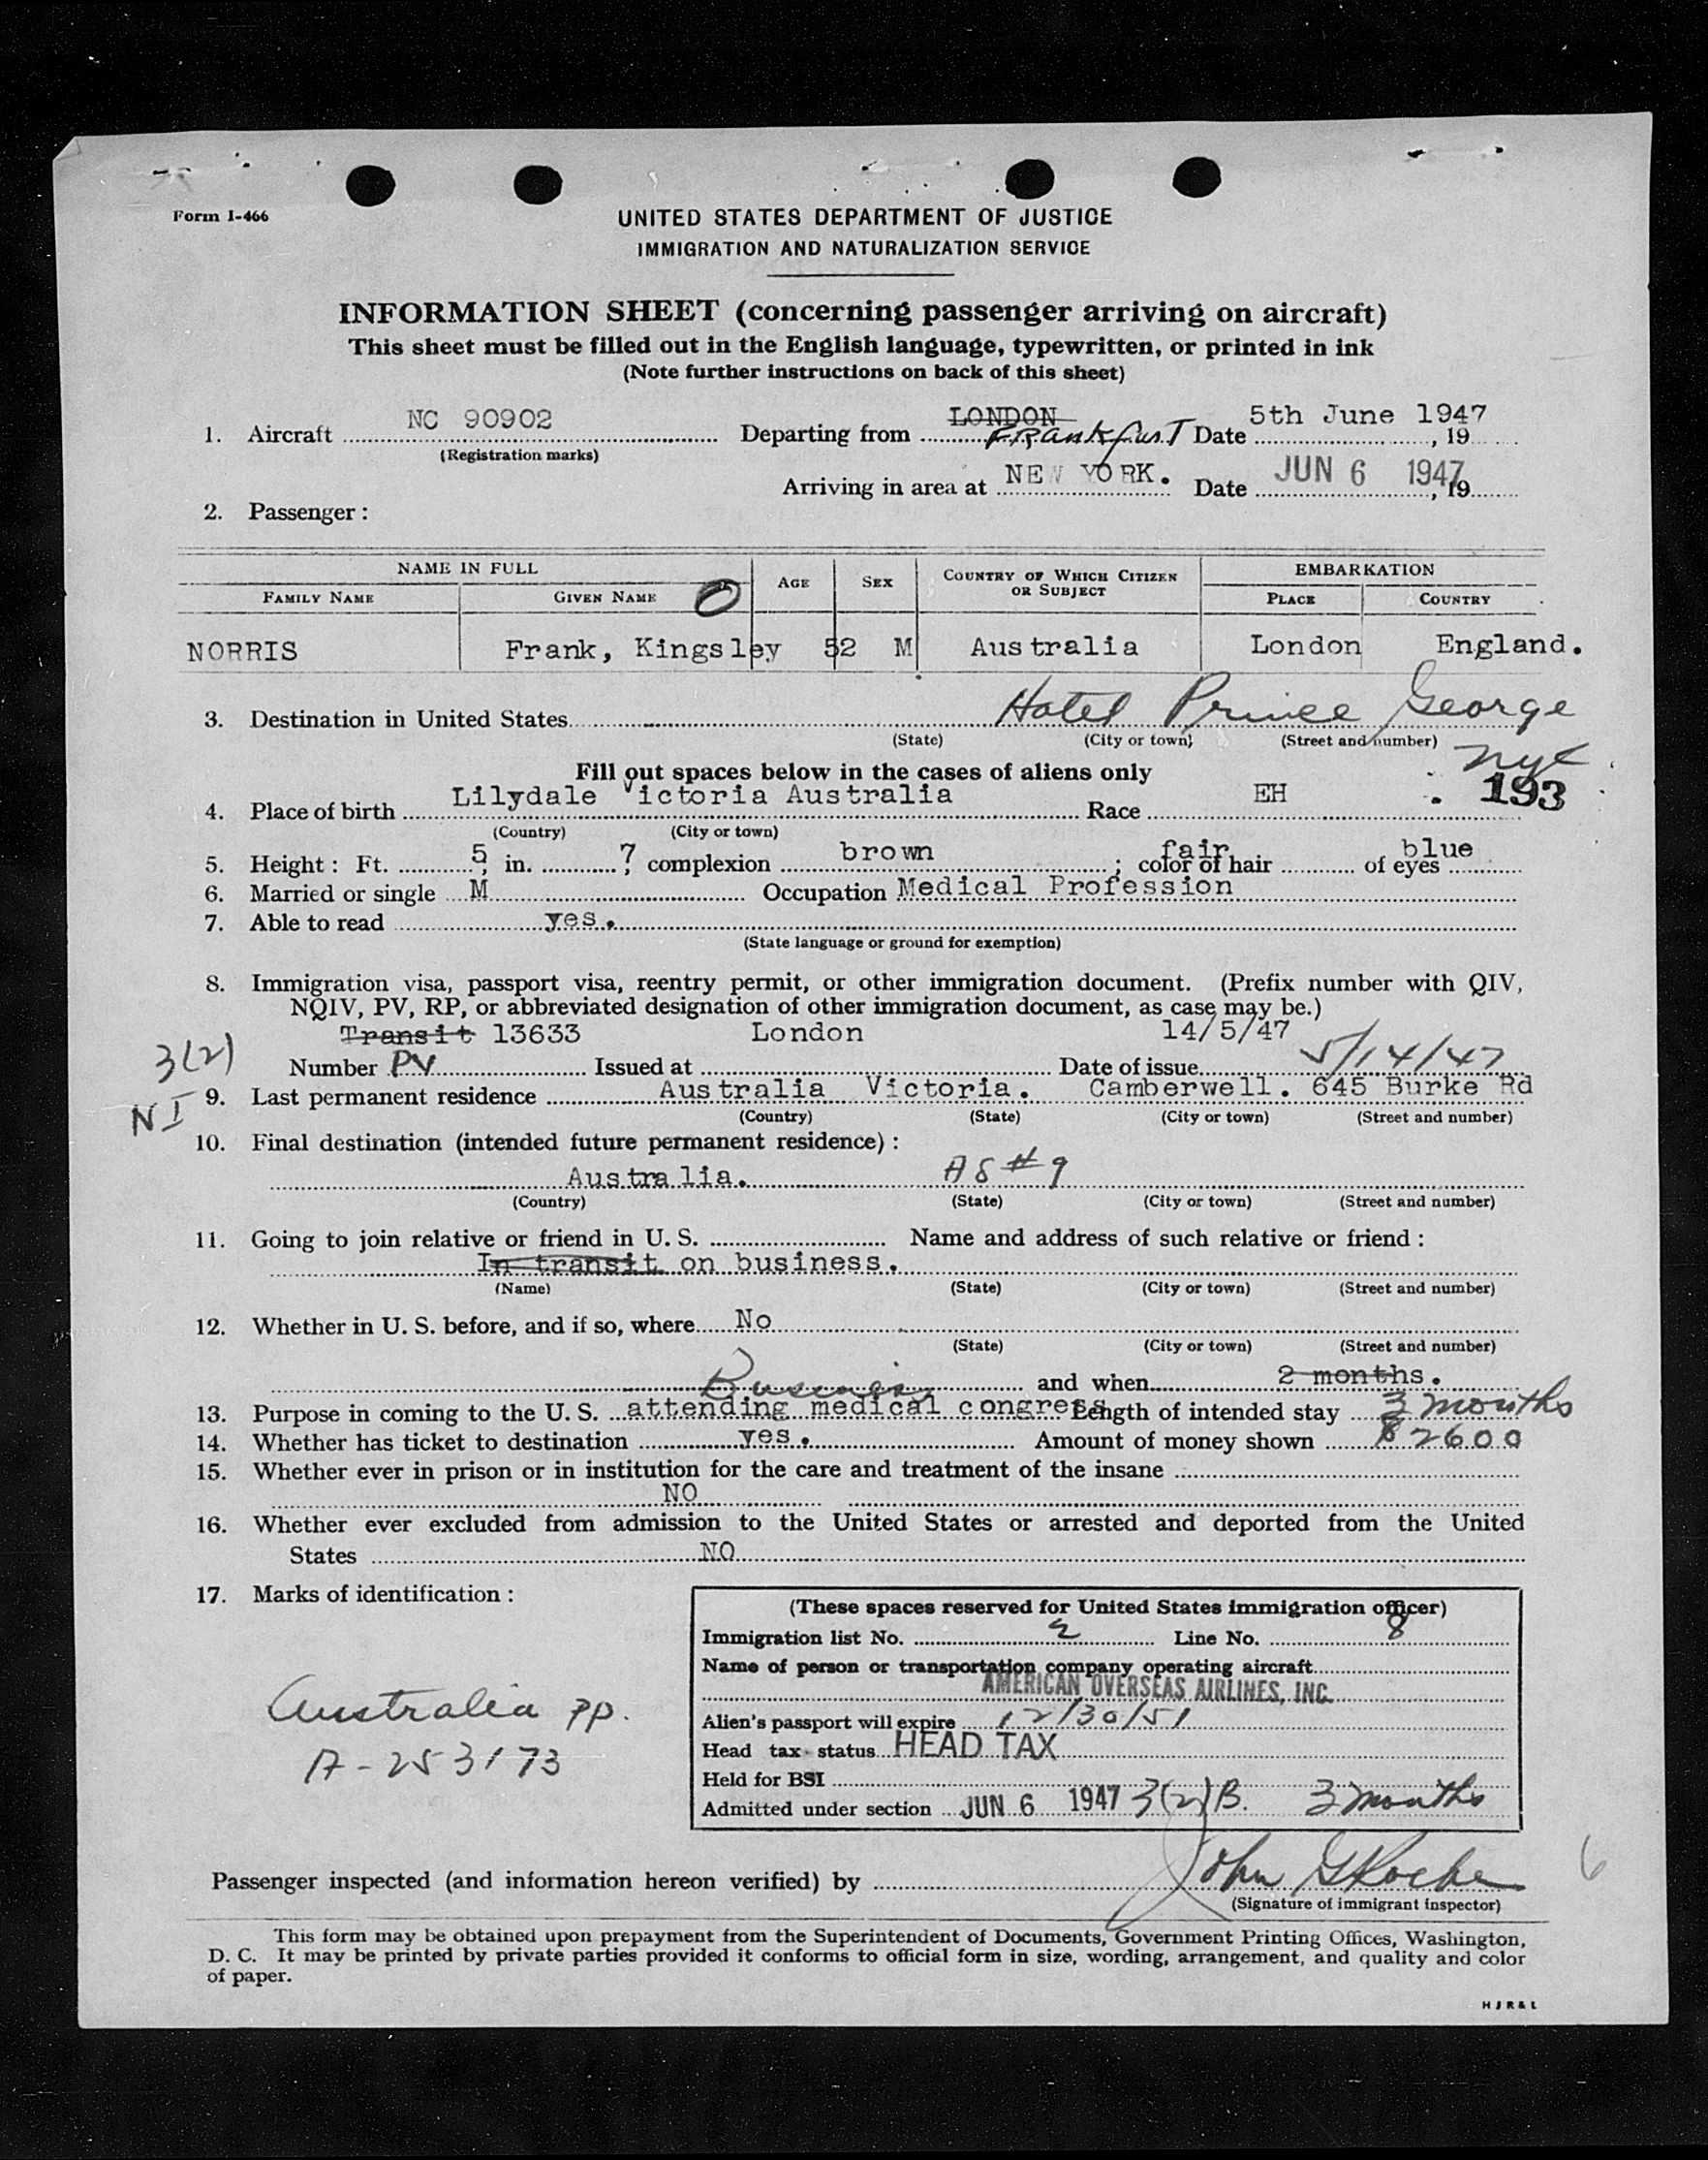 Form I-466
UNITED STATES DEPARTMENT OF JUSTICE
IMMIGRATION AND NATURALIZATION SERVICE
INFORMATION SHEET (concerning passenger arriving on aircraft)
This sheet must be filled out in the English language, typewritten, or printed in ink
(Note further instructions on back of this sheet)
1. Aircraft NC 90902 Departing from LONDON FRankfurT Date 5th June 1947, 19
(Registration marks)
Arriving in area at NEW YORK. Date JUN 6 1947, 19
2. Passenger:
NAME IN FULL AGE SEX COUNTRY OF WHICH CITIZEN OR SUBJECT EMBARKATION
FAMILY NAME GIVEN NAME PLACE COUNTRY
NORRIS Frank, Kingsley 52 M Australia London England.
3. Destination in United States Hotel Prince George
(State) (City or town) (Street and number)
nyc
Fill out spaces below in the cases of aliens only
193
4. Place of birth Lilydale Victoria Australia Race EH
(Country) (City or town)
5. Height: Ft. 5, in. 7, complexion brown; color of hair fair of eyes blue
6. Married or single M Occupation Medical Profession
7. Able to read yes.
(State language or ground for exemption)
8. Immigration visa, passport visa, reentry permit, or other immigration document. (Prefix number with QIV,
NQIV, PV, RP, or abbreviated designation of other immigration document, as case may be.)
Transit 13633 London 14/5/47
3(2) Number PV Issued at Date of issue 5/14/47
NI 9. Last permanent residence Australia Victoria. Camberwell. 645 Burke Rd
(Country) (State) (City or town) (Street and number)
10. Final destination (intended future permanent residence):
Australia. A8#9
(Country) (State) (City or town) (Street and number)
11. Going to join relative or friend in U. S. Name and address of such relative or friend:
In transit on business.
(Name) (State) (City or town) (Street and number)
12. Whether in U. S. before, and if so, where No
(State) (City or town) (Street and number)
Business and when 2 months.
13. Purpose in coming to the U. S. attending medical congress Length of intended stay 3 months
14. Whether has ticket to destination yes. Amount of money shown $2600
15. Whether ever in prison or in institution for the care and treatment of the insane
NO
16. Whether ever excluded from admission to the United States or arrested and deported from the United
States NO
17. Marks of identification:
(These spaces reserved for United States immigration officer)
Immigration list No. 2 Line No. 8
Name of person or transportation company operating aircraft
AMERICAN OVERSEAS AIRLINES, INC.
Australia pp.
A-253173
Alien's passport will expire 12/30/51
Head tax status HEAD TAX
Held for BSI
Admitted under section JUN 6 1947 3(2)B. 3 months
Passenger inspected (and information hereon verified) by John G Roche
(Signature of immigrant inspector)
6
This form may be obtained upon prepayment from the Superintendent of Documents, Government Printing Offices, Washington,
D. C. It may be printed by private parties provided it conforms to official form in size, wording, arrangement, and quality and color
of paper.
HJR&L